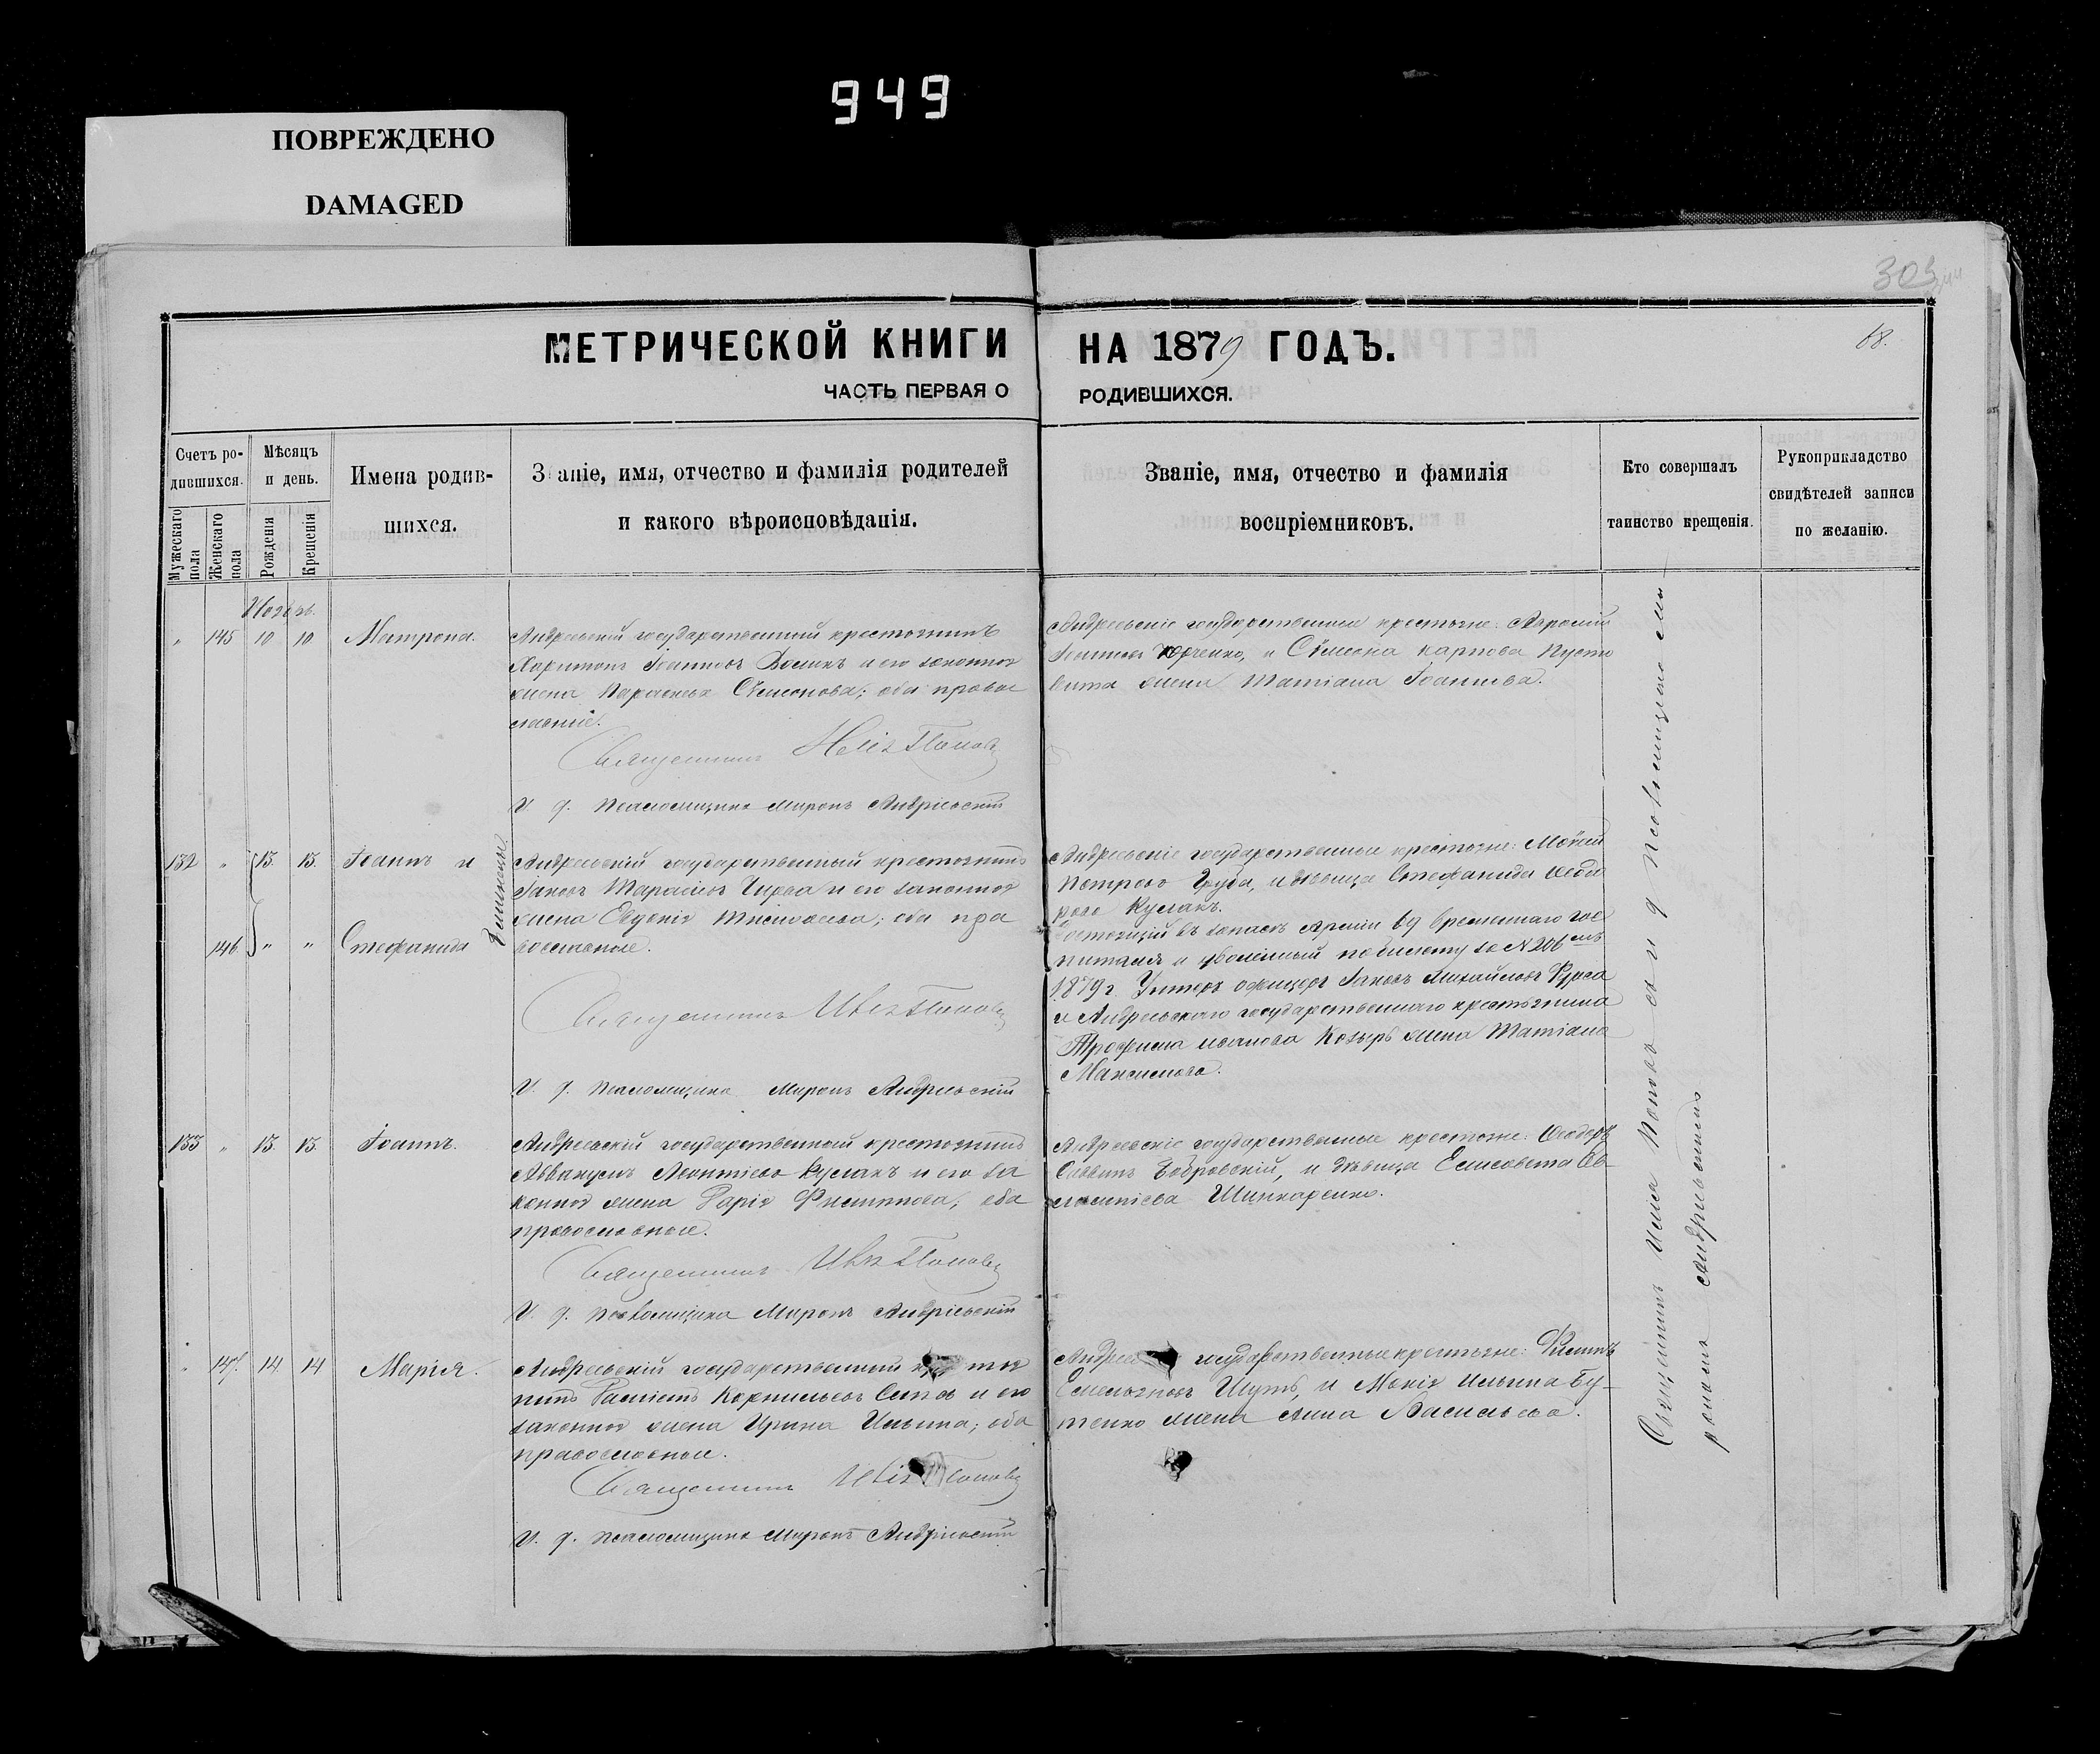 949
ПОВРЕЖДЕНО
DAMAGED
303
68.
МЕТРИЧЕСКОЙ КНИГИ НА 1879 ГОДЪ.
ЧАСТЬ ПЕРВАЯ О РОДИВШИХСЯ.
Счетъ ро-
дившихся.
Мужескаго пола
Женскаго пола
Мѣсяцъ
и день.
Рожденія
Крещенія
Имена родив-
шихся.
Званіе, имя, отчество и фамилія родителей
и какого вѣроисповѣданія.
Званіе, имя, отчество и фамилія
воспріемниковъ.
Кто совершалъ
таинство крещенія.
Рукоприкладство
свидѣтелей записи
по желанію.
Ноябрь.
" 145 10 10 Матрона.
Андреевскій государственный крестьянинъ
Харитонъ Іоанновъ и его законная
жена Параскева Сѵмеонова; оба право
славные.
Священникъ Попов
И. д. псаломщика Миронъ Андріевскій
Андреевскіе государственные крестьяне:
Іоанновъ Юрченко, и Сѵмеона Карпова Пусто
вита жена Татіана Іоаннова.
132 " 13. 13. Іоаннъ и
146 " " Стефанида
близнецы
Андреевскій государственный крестьянинъ
Іаковъ Тарасіевъ и его законная
жена Евдокія; оба пра
вославные.
Священникъ Попов
И. д. псаломщика Миронъ Андріевскій
Андреевскіе государственные крестьяне: Мойсей
Петровъ Груба, и дѣвица Стефанида Ѳедо
рова Куслакъ.
Состоящій въ запасѣ Арміи 69 временнаго гос
питаля и уволенный по билету за N 206
1879 г. Унтеръ офицеръ Іаковъ Михайловъ Фурса
и Андреевскаго государственнаго крестьянина
Трофима Иванова Козырь жена Татіана
Максимова.
133 " 13. 13. Іоаннъ.
Андреевскій государственный крестьянинъ
Аввакумъ Леонтіевъ Куслакъ и его за
конная жена Дарія Филиппова; оба
православные.
Священникъ Попов
И. д. псаломщика Миронъ Андріевскій
Андреевскіе государственные крестьяне: Ѳеодоръ
Саввинъ Бобровскій, и дѣвица Елисавета Ев-
лампіева Шинкаренко.
" 147. 14. 14 Марія.
Андреевскій государственный крестья
нинъ Корнильевъ и его
законная жена Ирина Ильина; оба
православные.
Священникъ Попов
И. д. псаломщика Миронъ Андріевскій
государственные крестьяне: Филиппъ
Емельяновъ Шутъ, и Мокія Ильина Бу-
тенко жена Анна Васильева.
Священникъ Илія Поповъ съ и д псаломщикомъ Ми
рономъ Андріевскимъ